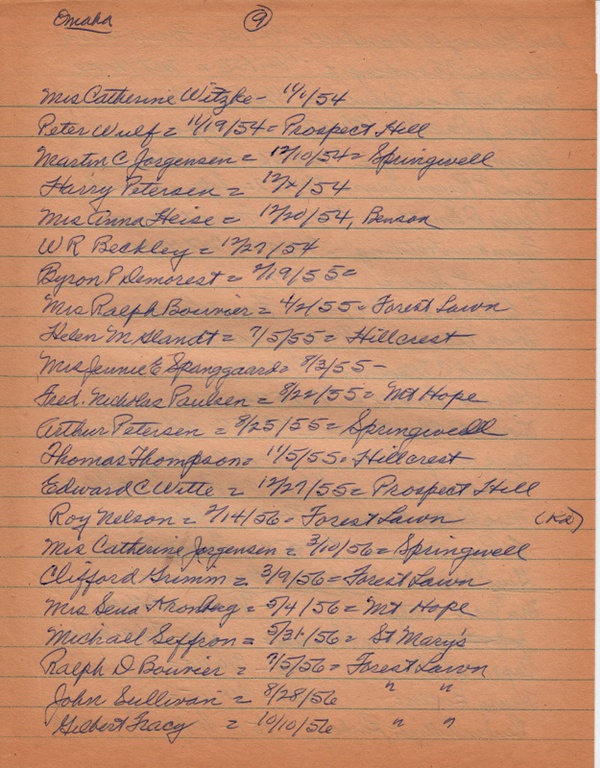 Omaha 9
Mrs Catherine Witzke - 11/1/54
Peter Wulf = 11/19/54 = Prospect Hill
Martin C Jorgensen = 12/10/54 = Springwell
Harry Petersen = /54
Mrs Anna Heise = 12/20/54, Benson
W R Beckley = 12/27/54
Byron P Demorest = 2/19/55 =
Mrs Ralph Bouvier = 4/2/55 = Forest Lawn
Helen M Glandt = 7/5/55 = Hillcrest
Mrs Jennie E Spanggaard = 8/3/55 -
Fred. Nicholas Paulsen = 8/22/55 = Mt Hope
Arthur Petersen = 8/25/55 = Springwell
Thomas Thompson = 11/5/55 = Hillcrest
Edward C Witte = 12/27/55 = Prospect Hill
Roy Nelson = 2/14/56 = Forest Lawn
Mrs Catherine Jorgensen = 3/10/56 = Springwell
Clifford Grimm = 3/9/56 = Forest Lawn
Mrs Sena = 5/4/56 = Mt Hope
Michael = 5/31/56 = St Mary's
Ralph D Bouvier = 7/5/56 = Forest Lawn
John Sullivan = 8/28/56 " "
Gilbert Tracy = 10/10/56 " "